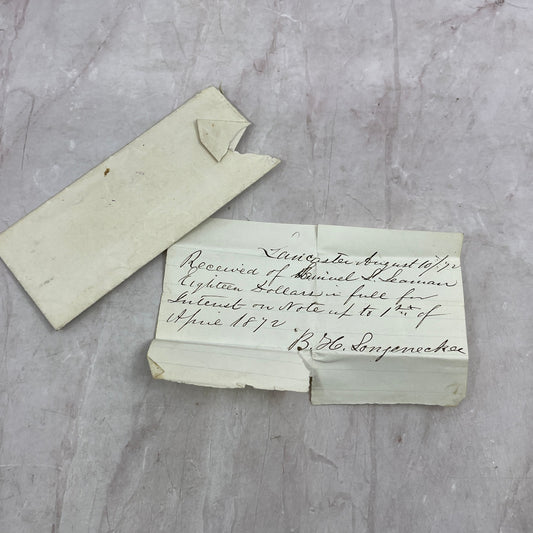 Lancaster August 10/72
Received of Samuel S. Seaman
Eighteen Dollars in full for
Interest on Note up to 1st of
April 1872
B. H. Longenecker